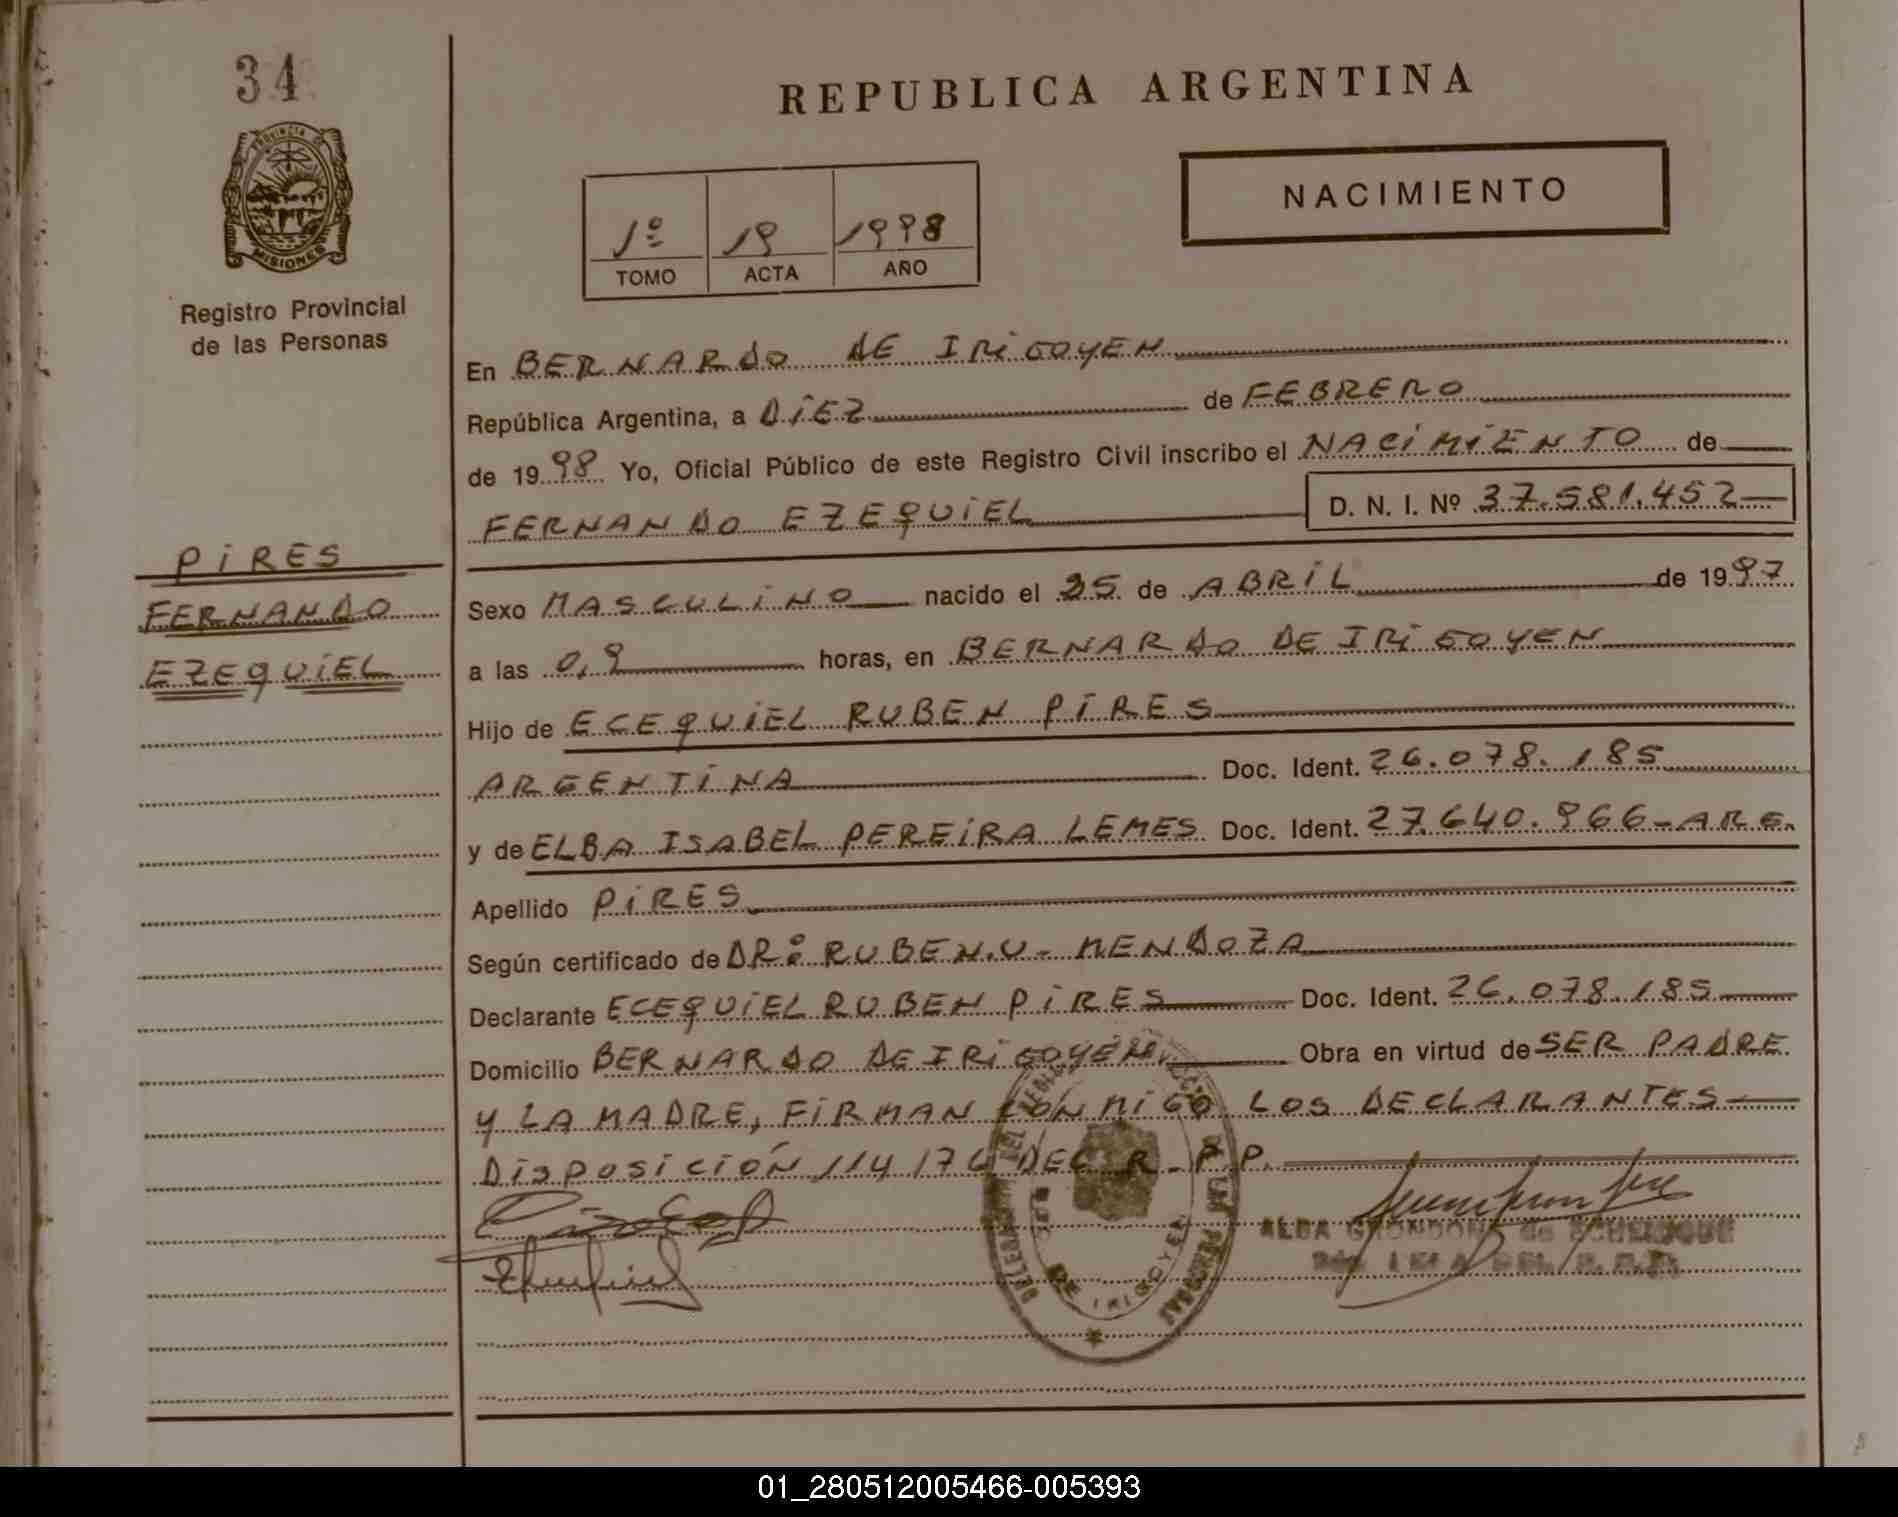 34
PROVINCIA DE
MISIONES
Registro Provincial
de las Personas
PIRES
FERNANDO
EZEQUIEL
REPUBLICA ARGENTINA
NACIMIENTO
1º 19 1998
TOMO ACTA AÑO
En BERNARDO DE IRIGOYEN
República Argentina, a DIEZ de FEBRERO
de 1998 Yo, Oficial Público de este Registro Civil inscribo el NACIMIENTO de
FERNANDO EZEQUIEL D. N. I. Nº 37.581.452
Sexo MASCULINO nacido el 25 de ABRIL de 1997
a las 0,9 horas, en BERNARDO DE IRIGOYEN
Hijo de ECEQUIEL RUBEN PIRES
ARGENTINA Doc. Ident. 26.078.185
y de ELBA ISABEL PEREIRA LEMES Doc. Ident. 27.640.966-ARG.
Apellido PIRES
Según certificado de DR: RUBEN.U- MENDOZA
Declarante ECEQUIEL RUBEN PIRES Doc. Ident. 26.078.185
Domicilio BERNARDO DE IRIGOYEN Obra en virtud de SER PADRE
Y LA MADRE, FIRMAN CONMIGO LOS DECLARANTES
DISPOSICIÓN 114/76 DEC R.P.P.
DE IRIGOYEN
LAS PERSONAS
ALBA GRONDONA de ECHENIQUE
01_280512005466-005393